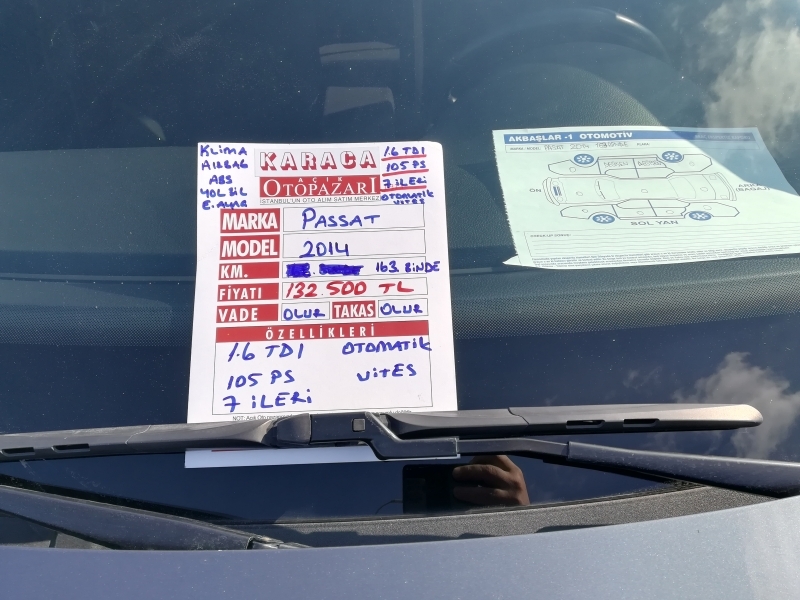 KLİMA
AIRBAG
ABS
YOL BİL
E. AYNA
KARACA
AÇIK
OTOPAZARI
İSTANBUL'UN OTO ALIM SATIM MERKEZİ
1.6 TDI
105 PS
7 İLERİ
OTOMATİK
VİTES
MARKA PASSAT
MODEL 2014
KM. 163. BİNDE
FİYATI 132.500 TL
VADE OLUR TAKAS OLUR
ÖZELLİKLERİ
1.6 TDI OTOMATİK
105 PS VİTES
7 İLERİ
AKBAŞLAR -1 OTOMOTİV
ÖN
ARKA
(BAGAJ)
SOL YAN